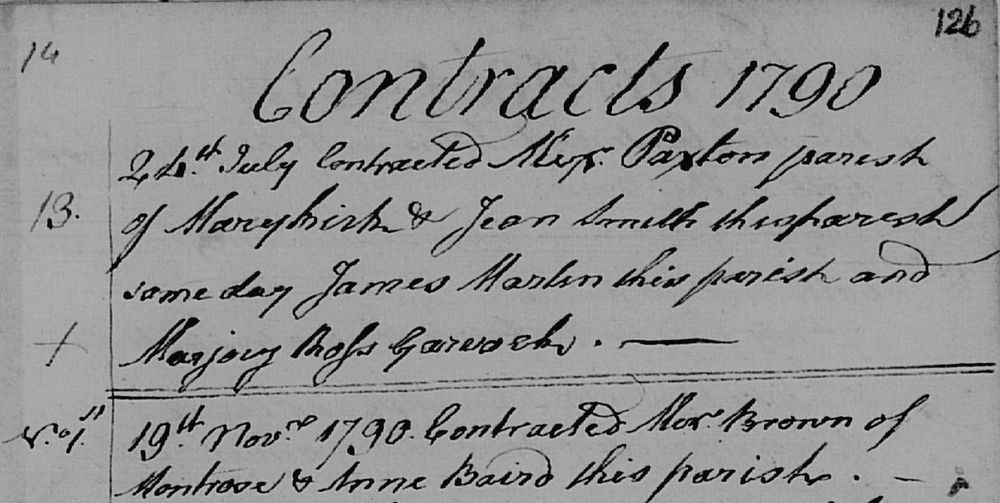 126
14
Contracts 1790
24th. July Contracted Alexr. Paxton parish
13. of Marykirk & Jean Smith this parish
same day James Martin this parish and
+ Marjory Ross Garvock. —
19th Novre 1790. Contracted Alexr. Brown of
Montrose & Anne Baird this parish. —